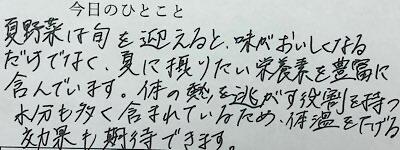 今日のひとこと
夏野菜は旬を迎えると、味がおいしくなる
だけでなく、夏に摂りたい栄養素を豊富に
含んでいます。体の熱を逃がす役割を持つ
水分も多く含まれているため、体温を下げる
効果も期待できます。